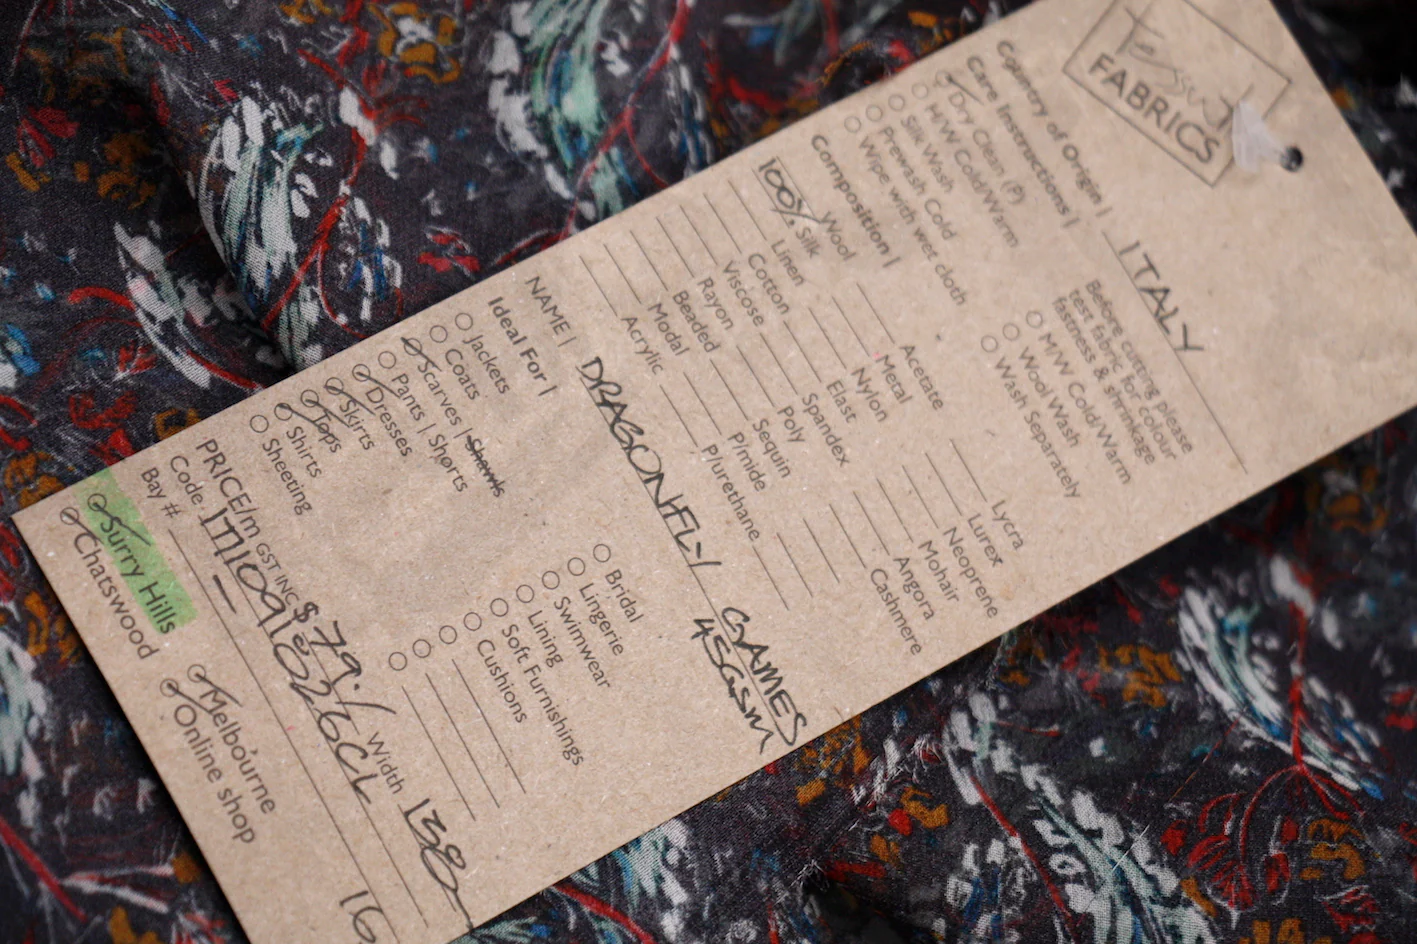 Tessuti
FABRICS
Country of Origin | ITALY
Care Instructions |
Dry Clean (P)
H/W Cold/Warm
Silk Wash
Prewash Cold
Wipe with wet cloth
Before cutting please
test fabric for colour
fastness & shrinkage
M/W Cold/Warm
Wool Wash
Wash Separately
Composition |
Wool
100% Silk
Linen
Cotton
Viscose
Rayon
Beaded
Modal
Acrylic
Acetate
Metal
Nylon
Elast
Spandex
Poly
Sequin
P/mide
Plurethane
Lycra
Lurex
Neoprene
Mohair
Angora
Cashmere
NAME | DRAGONFLY GAMES
45GSM
Ideal For |
Jackets
Coats
Scarves | Shawls
Pants | Shorts
Dresses
Skirts
Tops
Shirts
Sheeting
Bridal
Lingerie
Swimwear
Lining
Soft Furnishings
Cushions
PRICE/m GST INC $79./ Width 138
Code
Bay #
Surry Hills
Chatswood
Melbourne
Online shop